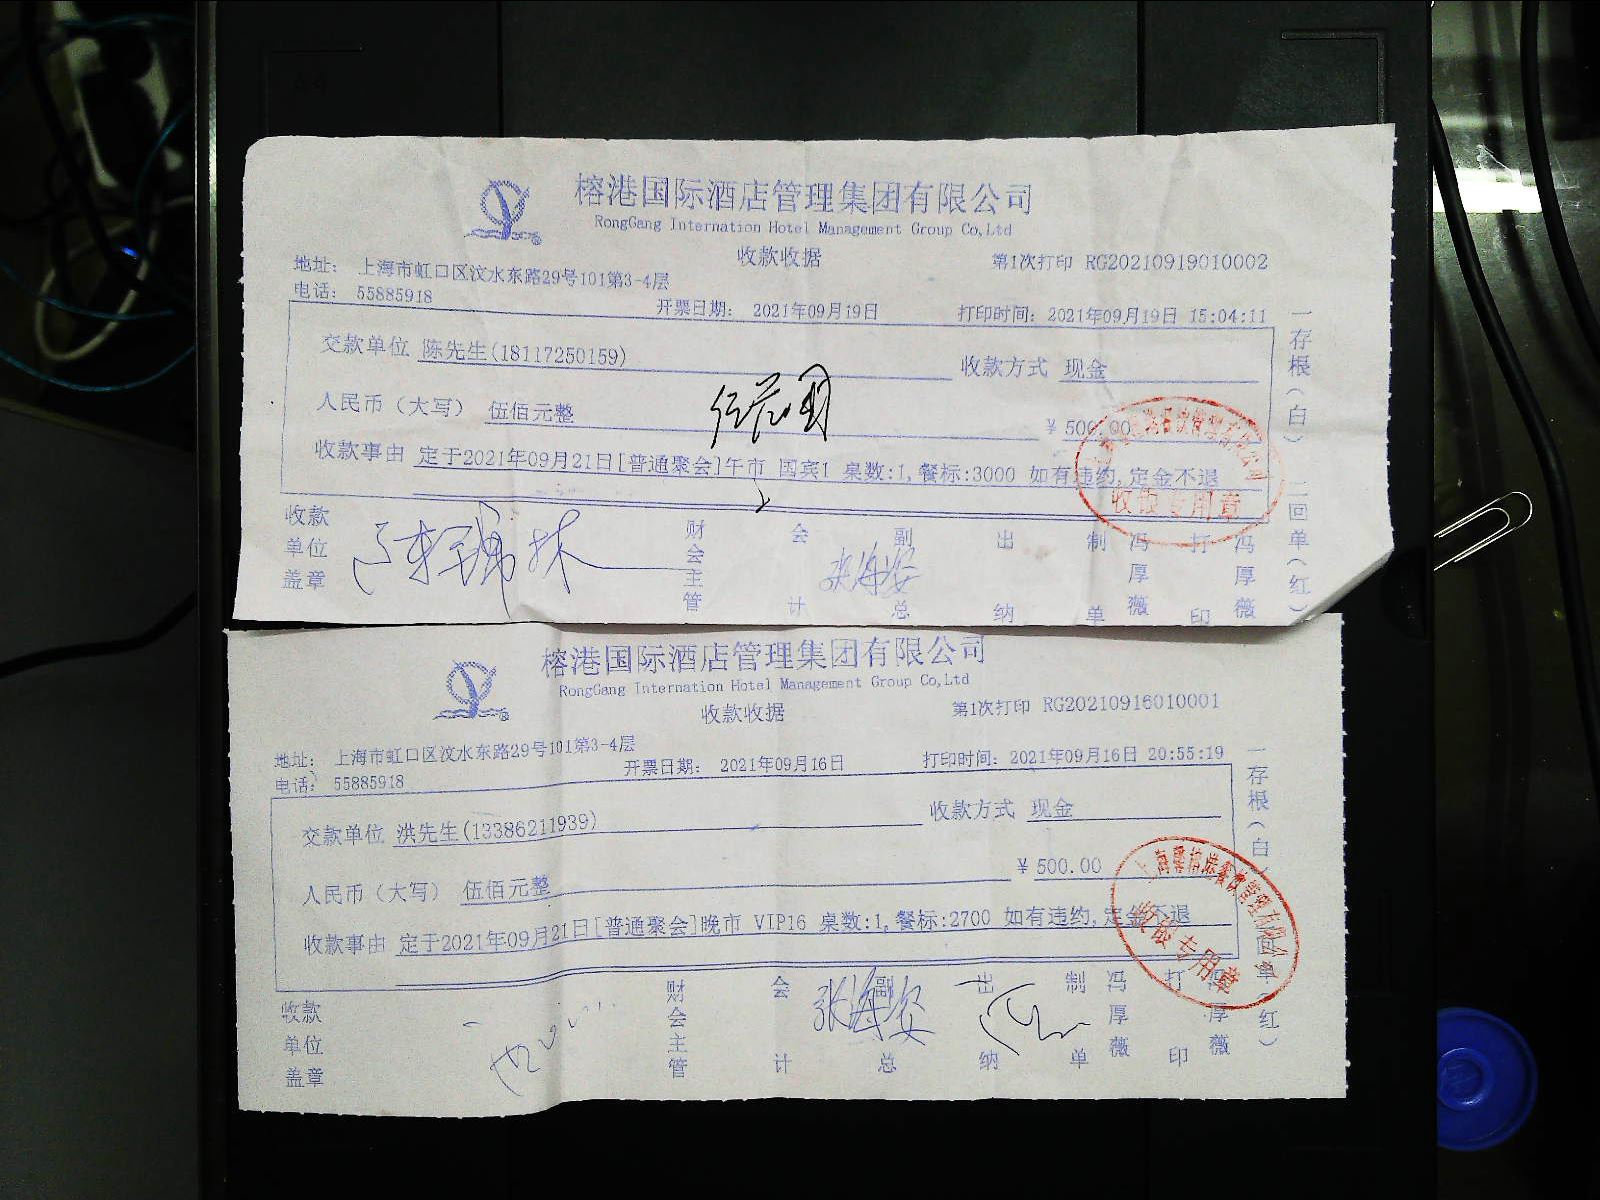 榕港国际酒店管理集团有限公司
RongGang Internation Hotel Management Group Co,Ltd
收款收据
第1次打印 RG20210919010002
地址： 上海市虹口区汶水东路29号101第3-4层
电话： 55885918
开票日期： 2021年09月19日
打印时间：2021年09月19日 15:04:11
交款单位 陈先生(18117250159)
收款方式 现金
人民币（大写） 伍佰元整
￥500.00
收款事由 定于2021年09月21日[普通聚会]午市 国宾1 桌数:1,餐标:3000 如有违约,定金不退
收款单位盖章
财会主管
会计
副总
张海姿
出纳
制单
冯厚薇
打印
冯厚薇
一存根(白) 二回单(红)
收银专用章
榕港国际酒店管理集团有限公司
RongGang Internation Hotel Management Group Co,Ltd
收款收据
第1次打印 RG20210916010001
地址： 上海市虹口区汶水东路29号101第3-4层
电话： 55885918
开票日期： 2021年09月16日
打印时间：2021年09月16日 20:55:19
交款单位 洪先生(13386211939)
收款方式 现金
人民币（大写） 伍佰元整
￥500.00
收款事由 定于2021年09月21日[普通聚会]晚市 VIP16 桌数:1,餐标:2700 如有违约,定金不退
收款单位盖章
财会主管
会计
副总
张海姿
出纳
制单
冯厚薇
打印
冯厚薇
一存根(白) 回单(红)
专用章